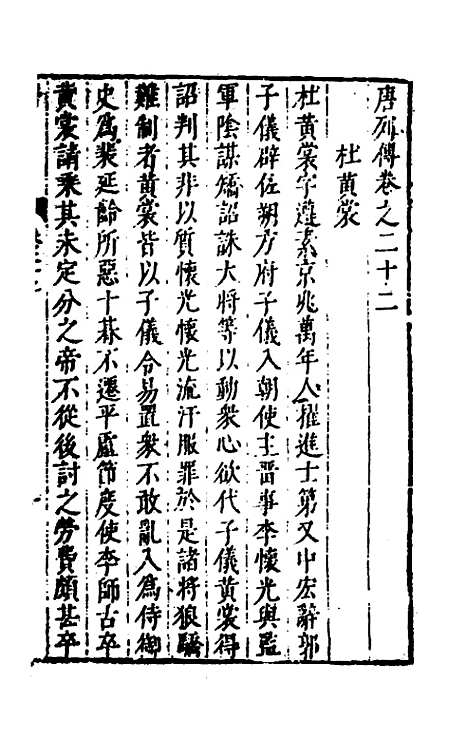 唐列傳卷之二十二
杜黃裳
杜黃裳字遵素京兆萬年人擢進士第又中宏辭郭
子儀辟佐朔方府子儀入朝使主畱事李懷光與監
軍陰謀矯詔誅大將等以動衆心欲代子儀黃裳得
詔判其非以質懷光懷光流汗服罪於是諸將狼驕
難制者黃裳皆以子儀令易置衆不敢亂入爲侍御
史爲裴延齡所惡十朞不遷平盧節度使李師古卒
黃裳請乘其未定分之帝不從後討之勞費頗甚卒